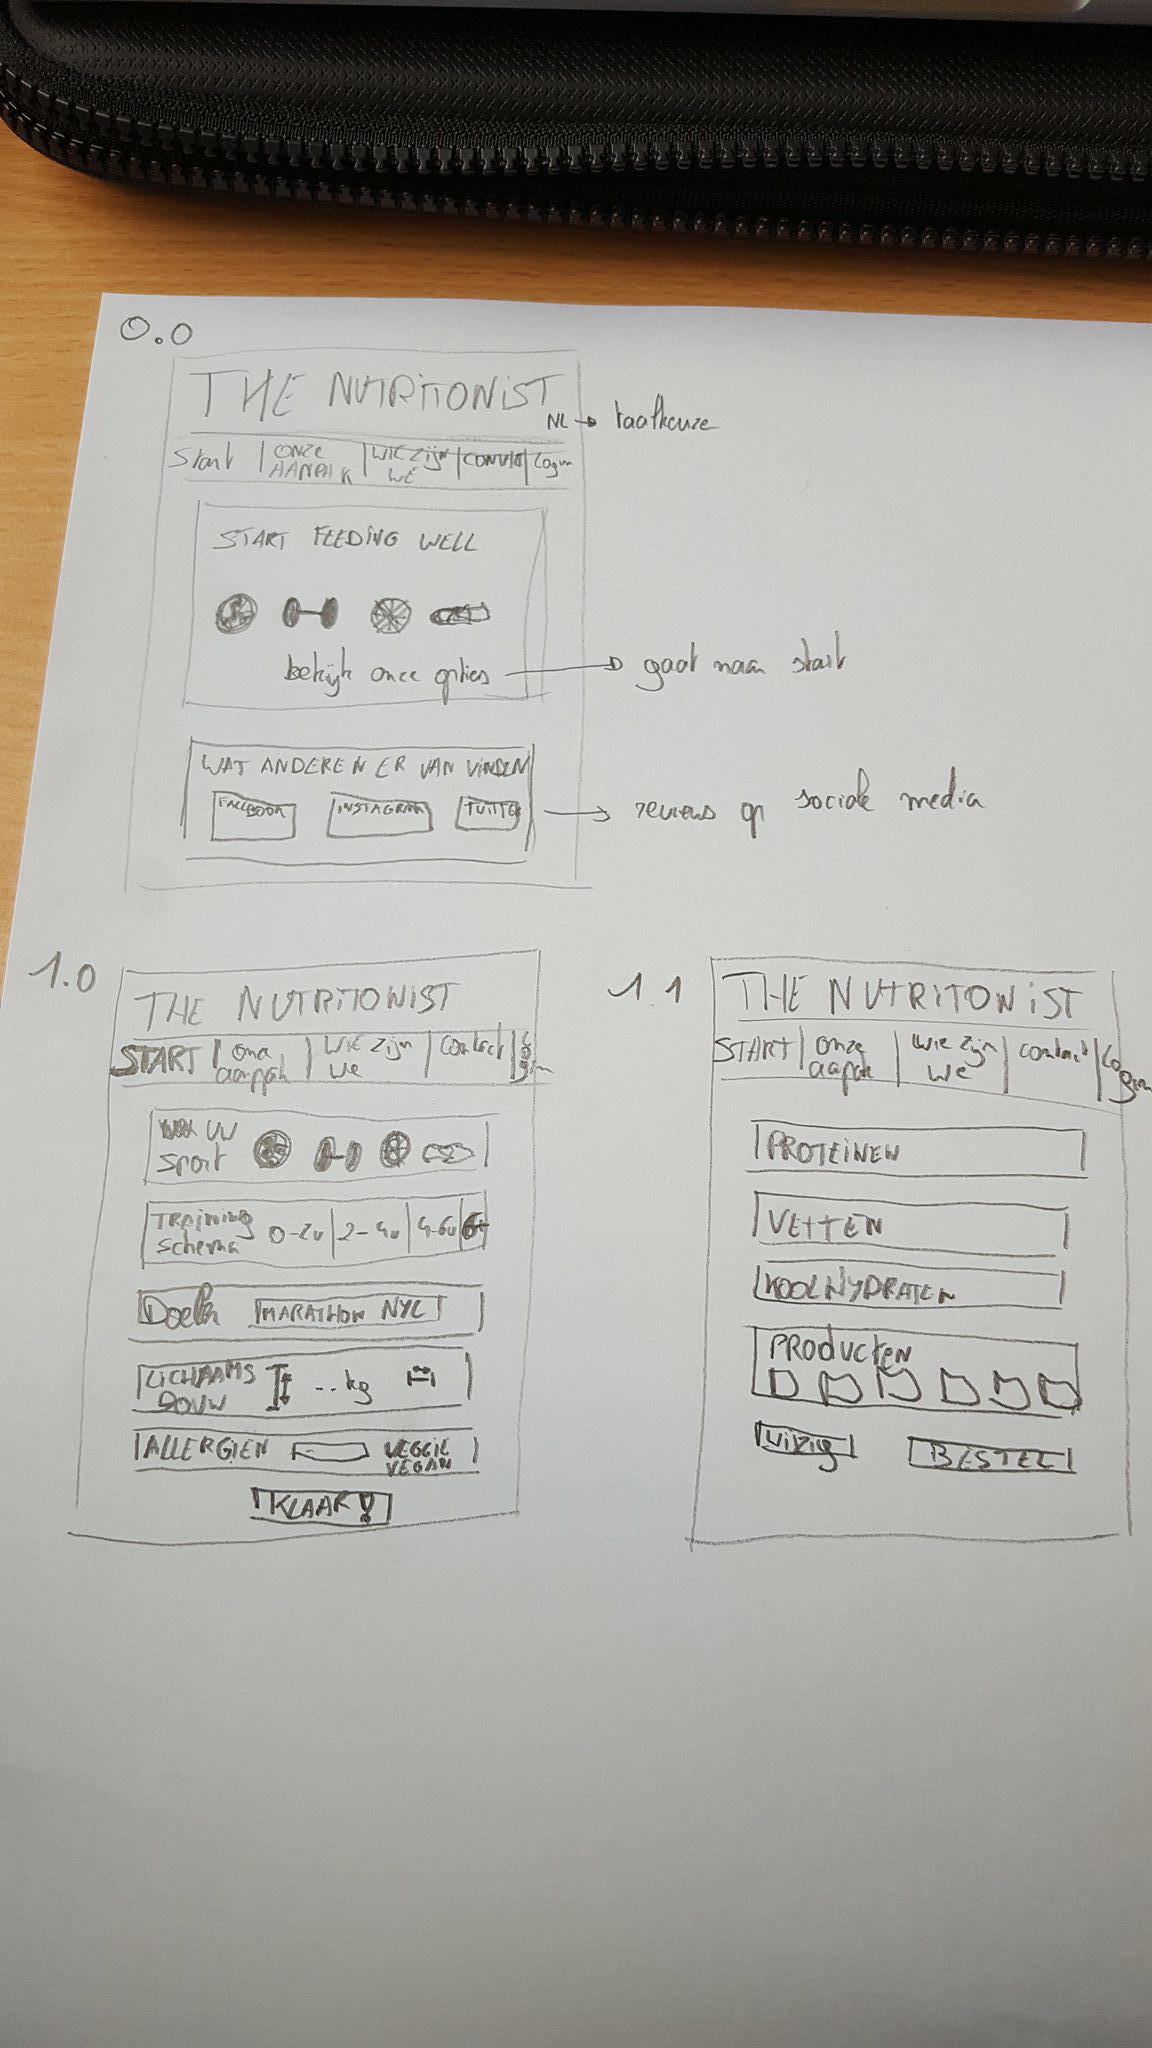 0.0
THE NUTRITONIST
NL → taalkeuze
Start | ONZE AANPAK | WIE ZIJN WE | CONTACT | Login
START FEEDING WELL
bekijk onze opties → gaat naar start
WAT ANDEREN ER VAN VINDEN
FACEBOOK INSTAGRAM → reviews op sociale media
1.0
THE NUTRITIONIST
START | onze aanpak | WIE ZIJN WE | contact | Login
UW sport
TRAINING schema 0-2u | 2-4u | 4-6u | 6+
Doelen MARATHON NYC
LICHAAMS BOUW ..kg
ALLERGIEN VEGGIE VEGAN
KLAAR!
1.1
THE NUTRITONIST
START | onze aanpak | WIE ZIJN WE | contact | Login
PROTEINEN
VETTEN
KOOLHYDRATEN
PRODUCTEN
wijzig BESTEL